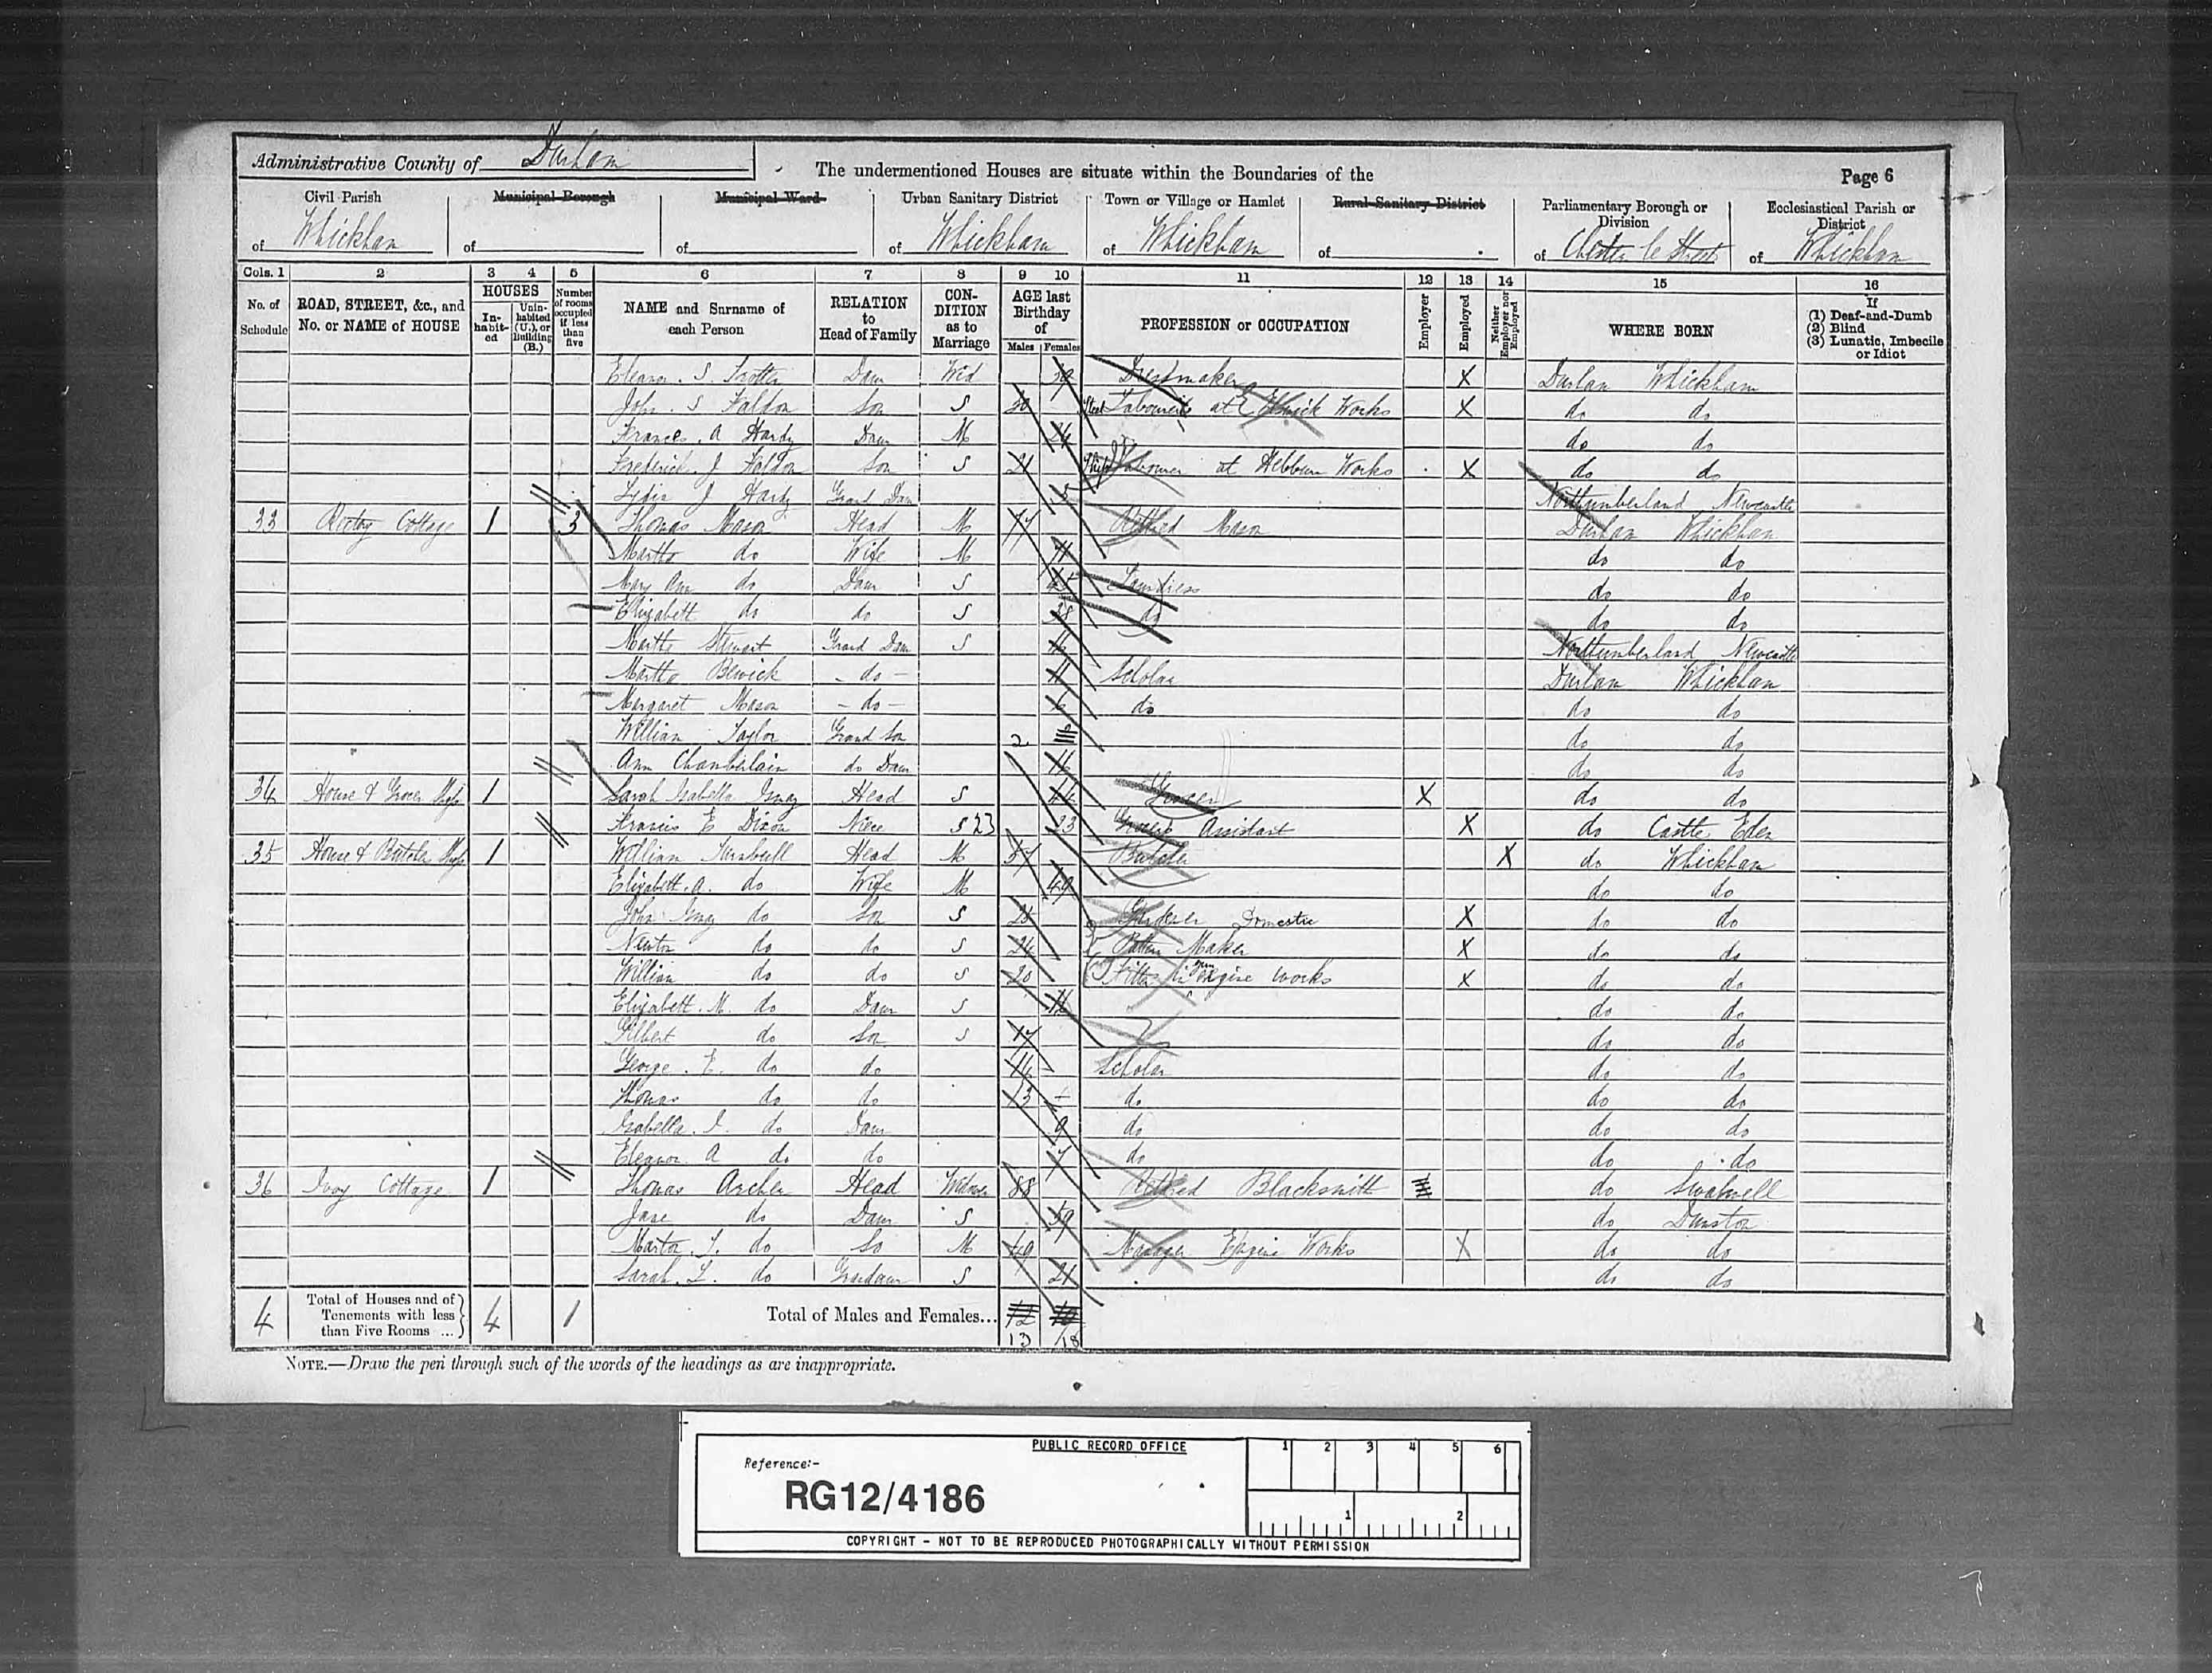 Administrative County of Durham
The undermentioned Houses are situate within the Boundaries of the
Page 6
Civil Parish of Whickham
Municipal Borough of
Municipal Ward of
Urban Sanitary District of Whickham
Town or Village or Hamlet of Whickham
Rural Sanitary District of
Parliamentary Borough or Division of Chester le Street
Ecclesiastical Parish or District of Whickham
Cols. 1 2 3 4 5 6 7 8 9 10 11 12 13 14 15 16
No. of Schedule
ROAD, STREET, &c., and No. or NAME of HOUSE
HOUSES
In-habit-ed
Unin-habited (U.), or Building (B.)
Number of rooms occupied if less than five
NAME and Surname of each Person
RELATION to Head of Family
CON-DITION as to Marriage
AGE last Birthday of
Males Females
PROFESSION or OCCUPATION
Employer
Employed
Neither Employer nor Employed
WHERE BORN
If
(1) Deaf-and-Dumb
(2) Blind
(3) Lunatic, Imbecile or Idiot
Eleanor. S. Trotter Daur Wid Dressmaker X Durham Whickham
John. S Son S 30 Labourer at Elswick Works X do do
Frances. A Hardy Daur M 24 do do
Frederick. J Son S 21 Labourer at Hebburn Works X do do
Lydia J Hardy Grand Daur Northumberland Newcastle
33 Cottage 1 3 Thomas Mason Head M 77 Retired Mason Durham Whickham
Martha do Wife M 71 do do
Mary Ann do Daur S 45 Laundress do do
Elizabeth do do S 38 do do do
Martha Stewart Grand Daur S Northumberland Newcastle
Martha Bewick - do - 11 Scholar Durham Whickham
Margaret Mason - do - 6 do do do
William Taylor Grand Son 2 do do
Ann Chamberlain do Daur do do
34 House & Grocer Shop 1 Sarah Isabella Gray Head S Grocer X do do
Francis E Dixon Niece S 23 23 Grocers Assistant X do Castle Eden
35 House & Butcher Shop 1 William Turnbull Head M 57 Butcher X do Whickham
Elizabeth. A. do Wife M 49 do do
John Gray do Son S Gardener Domestic X do do
Newton do do S 24 Pattern Maker X do do
William do do S 20 Fitter in Engine Works X do do
Elizabeth. M. do Daur S do do
Gilbert do Son S 17 do do
George. E. do do 14 Scholar do do
Thomas do do 13 do do do
Isabella. J. do Daur 9 do do do
Eleanor. A do do 7 do do do
36 Ivy Cottage 1 Thomas Archer Head Widower 88 Retired Blacksmith do Swalwell
Jane do Daur S 59 do Dunston
do So M 49 Manager Engine Works X do do
Sarah. L. do Grandaur S 21 do do
4 Total of Houses and of Tenements with less than Five Rooms ... 4 1 Total of Males and Females... 12
13 18
NOTE.—Draw the pen through such of the words of the headings as are inappropriate.
PUBLIC RECORD OFFICE
Reference:-
RG12/4186
1 2 3 4 5 6
1 2
COPYRIGHT - NOT TO BE REPRODUCED PHOTOGRAPHICALLY WITHOUT PERMISSION